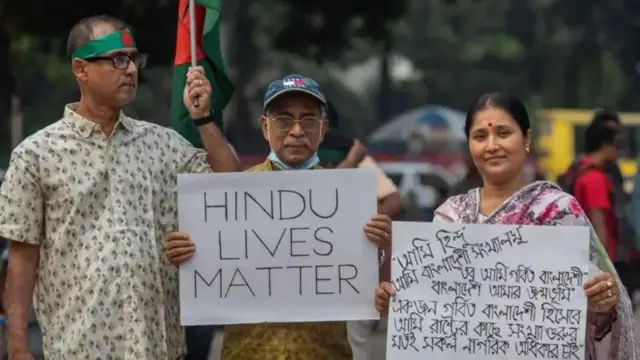 HINDU
LIVES
MATTER
"আমি হিন্দু, সংখ্যালঘু
আমি বাংলাদেশী
তবু আমি গর্বিত বাংলাদেশী"
বাংলাদেশ আমার জন্মভূমি
একজন গর্বিত বাংলাদেশী হিসেবে
আমি রাষ্ট্রের কাছে সংখ্যা গুরুর
মতই সকল নাগরিক অধিকার চাই"